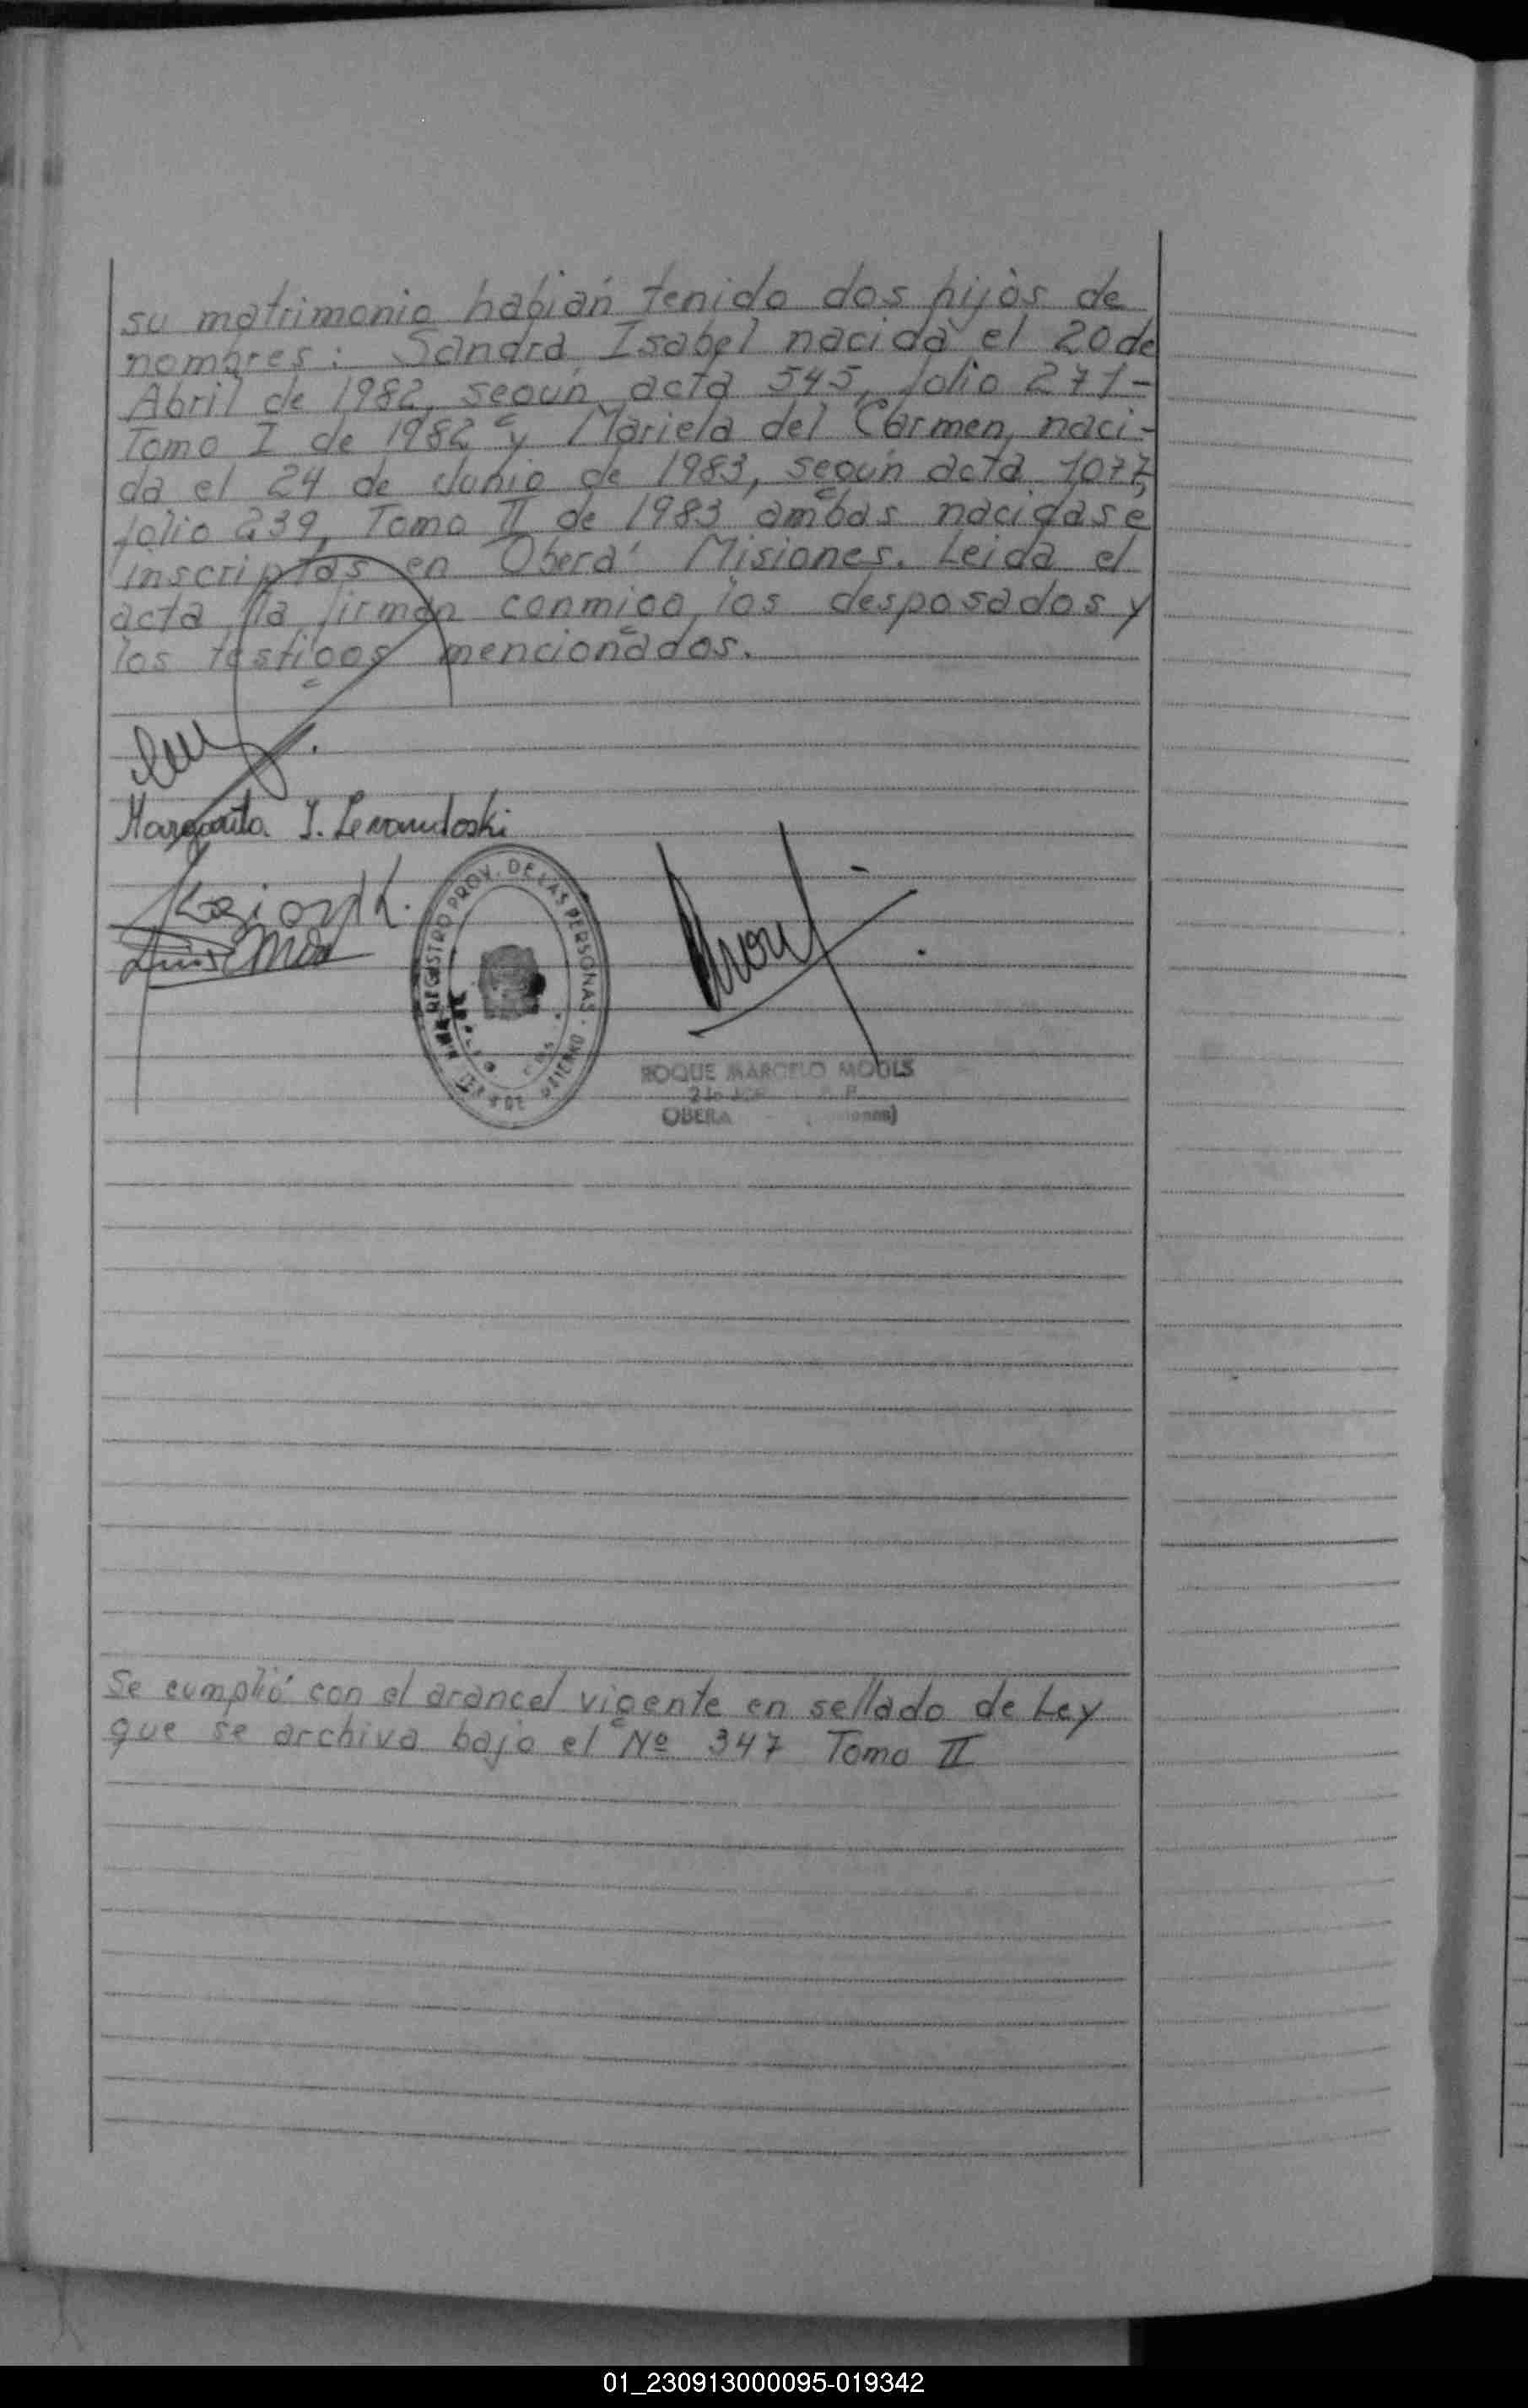 su matrimonio habían tenido dos hijos de
nombres: Sandra Isabel nacida el 20 de
Abril de 1982, según acta 545, folio 271-
Tomo I de 1982 y Mariela del Carmen, naci-
da el 24 de Junio de 1983, según acta 1077,
folio 239, Tomo II de 1983 ambas nacidas e
inscriptas en Oberá Misiones. Leida el
acta la firman conmigo los desposados y
los testigos mencionados.
Margarita I. Levandoski
REGISTRO PROV. DE LAS PERSONAS
ROQUE MARCELO MODLS
OBERA
Se cumplió con el arancel vigente en sellado de Ley
que se archiva bajo el Nº 347 Tomo II
01_230913000095-019342